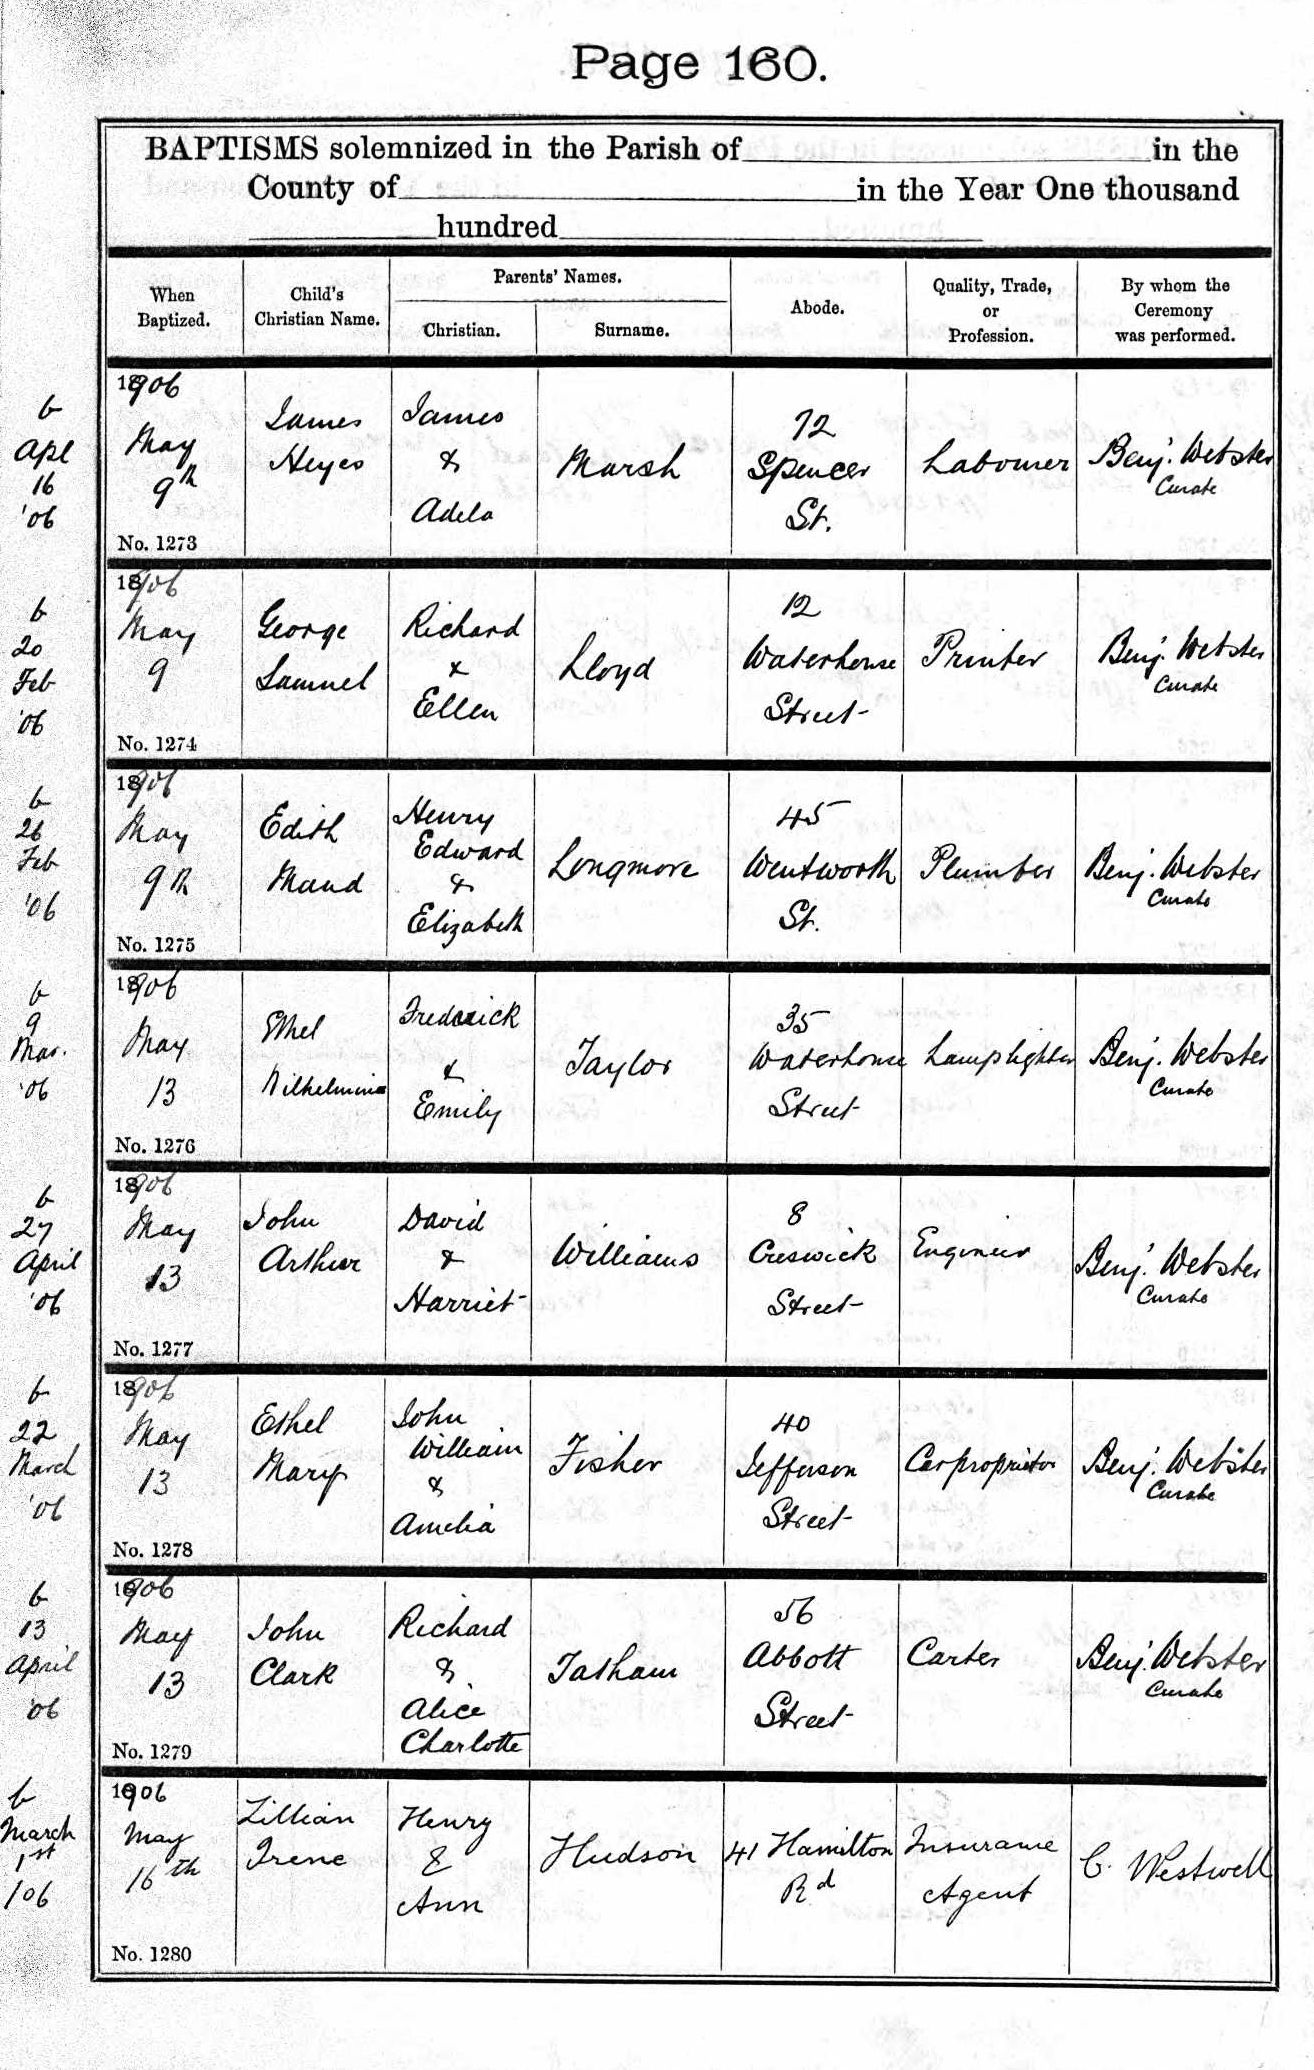 Page 160.
BAPTISMS solemnized in the Parish of in the
County of in the Year One thousand
hundred
When
Baptized.
Child's
Christian Name.
Parents' Names.
Christian.
Surname.
Abode.
Quality, Trade,
or
Profession.
By whom the
Ceremony
was performed.
b
Apl
16
'06
1906
May
9th
No. 1273
James
Heyes
James
&
Adela
Marsh
72
Spencer
St.
Labourer
Benj. Webster
Curate
b
20
Feb
'06
1906
May
9
No. 1274
George
Samuel
Richard
&
Ellen
Lloyd
12
Waterhouse
Street
Printer
Benj. Webster
Curate
b
26
Feb
'06
1906
May
9th
No. 1275
Edith
Maud
Henry
Edward
&
Elizabeth
Longmore
45
Wentworth
St.
Plumber
Benj. Webster
Curate
b
9
Mar.
'06
1906
May
13
No. 1276
Ethel
Wilhelmina
Frederick
&
Emily
Taylor
35
Waterhouse
Street
Lamplighter
Benj. Webster
Curate
b
27
April
'06
1906
May
13
No. 1277
John
Arthur
David
&
Harriet
Williams
8
Creswick
Street
Engineer
Benj. Webster
Curate
b
22
March
'06
1906
May
13
No. 1278
Ethel
Mary
John
William
&
Amelia
Fisher
40
Jefferson
Street
Carproprietor
Benj. Webster
Curate
b
13
April
'06
1906
May
13
No. 1279
John
Clark
Richard
&
Alice
Charlotte
Tatham
56
Abbott
Street
Carter
Benj. Webster
Curate
b
March
1st
/06
1906
May
16th
No. 1280
Lillian
Irene
Henry
&
Ann
Hudson
41 Hamilton
Rd
Insurance
Agent
C. Westwell